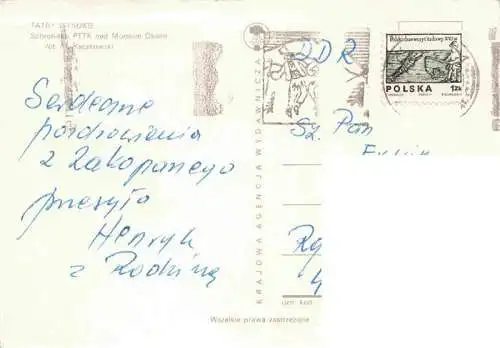 TATRY WYSOKIE
Schronisko PTTK nad Morskim Okiem
fot. Kaczkowski
Serdeczne
pozdrowienia
z Zakopanego
przesyła
Henryk
z Rodziną
KRAJOWA AGENCJA WYDAWNICZA
DDR
POLSKA
1zł
Sz. Pan
nr kod
Wszelkie prawa zastrzeżone